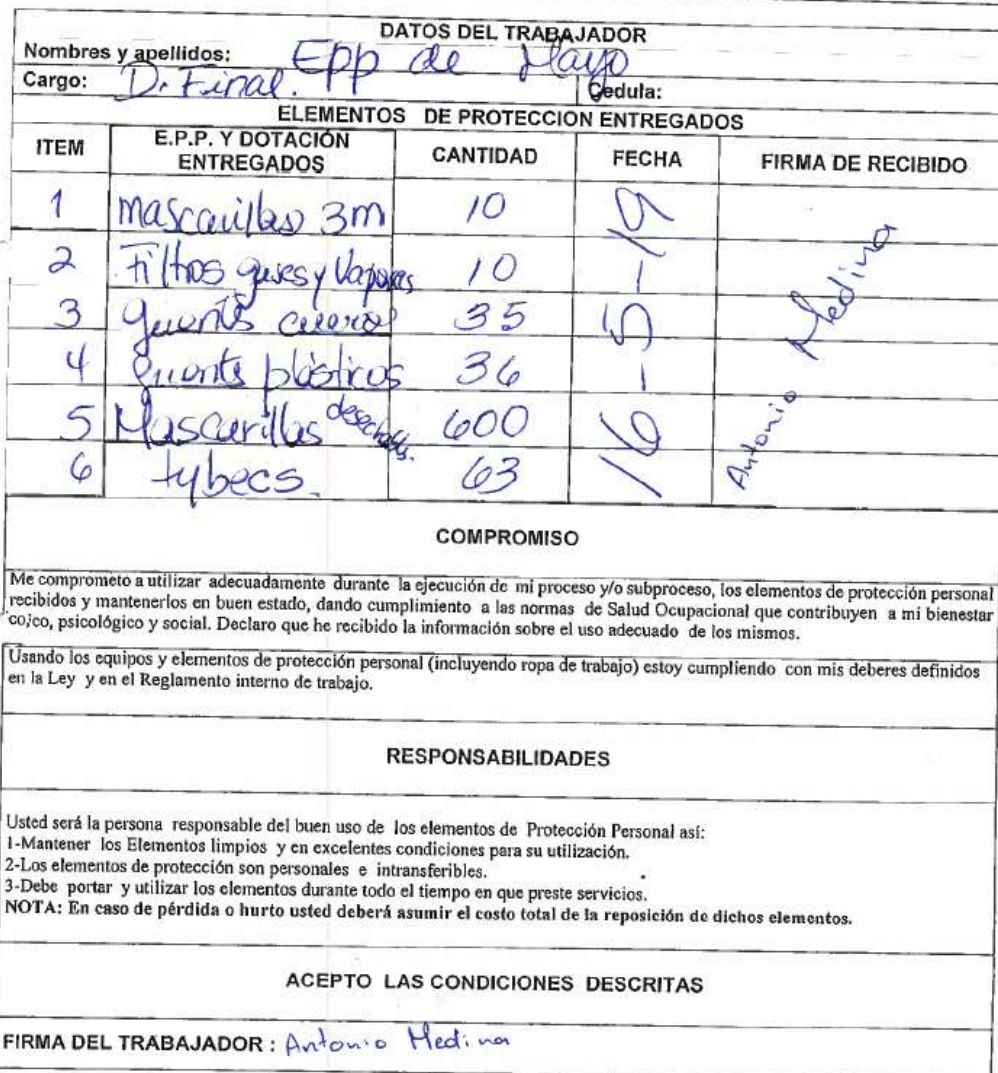 DATOS DEL TRABAJADOR
Nombres y apellidos: Epp de Mayo
Cargo: D. Final. Cedula:
ELEMENTOS DE PROTECCION ENTREGADOS
ITEM E.P.P. Y DOTACIÓN ENTREGADOS CANTIDAD FECHA FIRMA DE RECIBIDO
1 mascarillas 3m 10
2 Filtros gases y Vapores 10
3 guants cueros 35
4 guants plásticos 36
5 Mascarillas desechables. 600
6 tybecs. 63
16-5-19
Antonio Medina
COMPROMISO
Me comprometo a utilizar adecuadamente durante la ejecución de mi proceso y/o subproceso, los elementos de protección personal
recibidos y mantenerlos en buen estado, dando cumplimiento a las normas de Salud Ocupacional que contribuyen a mi bienestar
co;co, psicológico y social. Declaro que he recibido la información sobre el uso adecuado de los mismos.
Usando los equipos y elementos de protección personal (incluyendo ropa de trabajo) estoy cumpliendo con mis deberes definidos
en la Ley y en el Reglamento interno de trabajo.
RESPONSABILIDADES
Usted será la persona responsable del buen uso de los elementos de Protección Personal asi:
1-Mantener los Elementos limpios y en excelentes condiciones para su utilización.
2-Los elementos de protección son personales e intransferibles.
3-Debe portar y utilizar los elementos durante todo el tiempo en que preste servicios.
NOTA: En caso de pérdida o hurto usted deberá asumir el costo total de la reposición de dichos elementos.
ACEPTO LAS CONDICIONES DESCRITAS
FIRMA DEL TRABAJADOR : Antonio Medina